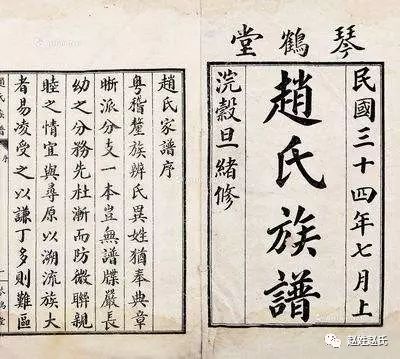 琴鶴堂
民國三十四年七月上
趙氏族譜
浣穀旦緒修
趙氏家譜序
粵稽釐族辨氏異姓猶奉典章
晰派分支一本豈無譜牒嚴長
幼之分務先杜漸而防微聯親
睦之情宜與尋原以溯流族大
者易凌受之以謙丁多則難區
趙氏族譜
序
一
赵姓赵氏